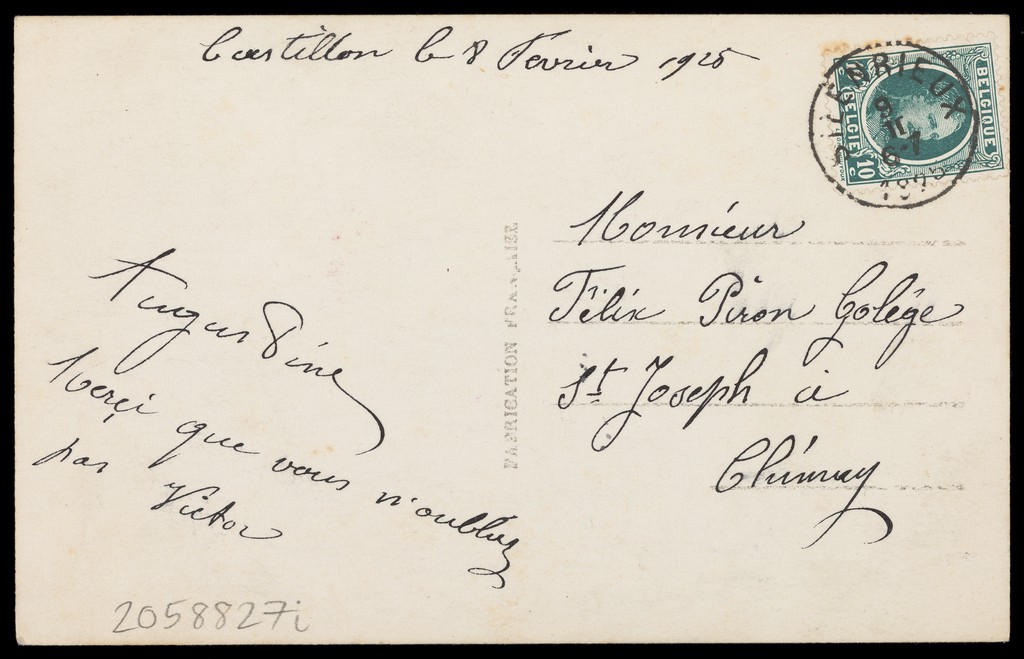 Castillon le 8 Fevrier 1925
BELGIE BELGIQUE
10 c 10 c
SILENRIEUX
1925
FABRICATION FRANÇAISE
Monsieur
Félix Piron Golége
St Joseph à
Chimay
Augustine
Merçi que vous n'oubliez
pas Victor
2058827i